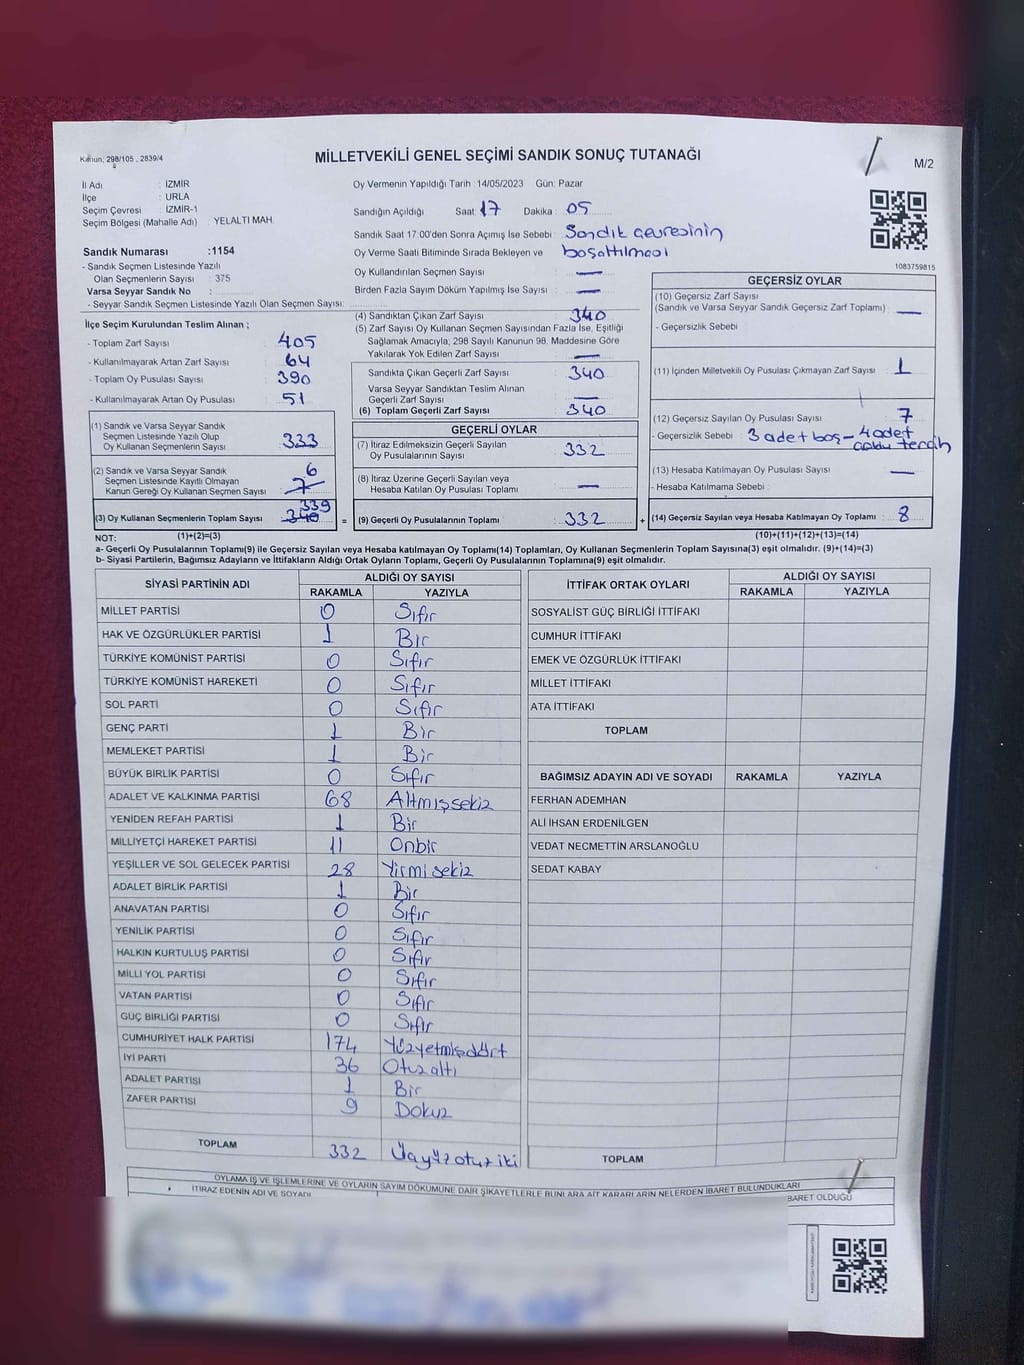 Kanun; 298/105 , 2839/4
MİLLETVEKİLİ GENEL SEÇİMİ SANDIK SONUÇ TUTANAĞI
M/2
İl Adı : İZMİR
İlçe : URLA
Seçim Çevresi : İZMİR-1
Seçim Bölgesi (Mahalle Adı) : YELALTI MAH.
Sandık Numarası :1154
- Sandık Seçmen Listesinde Yazılı
Olan Seçmenlerin Sayısı : 375
Varsa Seyyar Sandık No :
- Seyyar Sandık Seçmen Listesinde Yazılı Olan Seçmen Sayısı:
Oy Vermenin Yapıldığı Tarih :14/05/2023 Gün: Pazar
Sandığın Açıldığı Saat: 17 Dakika : 05
Sandık Saat 17:00'den Sonra Açımış İse Sebebi : Sandık çevresinin
Oy Verme Saati Bitiminde Sırada Bekleyen ve boşaltılması
Oy Kullandırılan Seçmen Sayısı : —
Birden Fazla Sayım Döküm Yapılmış İse Sayısı : —
1083759815
İlçe Seçim Kurulundan Teslim Alınan ;
- Toplam Zarf Sayısı : 405
- Kullanılmayarak Artan Zarf Sayısı : 64
- Toplam Oy Pusulası Sayısı : 390
- Kullanılmayarak Artan Oy Pusulası : 51
(1) Sandık ve Varsa Seyyar Sandık
Seçmen Listesinde Yazılı Olup
Oy Kullanan Seçmenlerin Sayısı : 333
(2) Sandık ve Varsa Seyyar Sandık 6
Seçmen Listesinde Kayıtlı Olmayan
Kanun Gereği Oy Kullanan Seçmen Sayısı : 7
339
(3) Oy Kullanan Seçmenlerin Toplam Sayısı : 340 =
(1)+(2)=(3)
(4) Sandıktan Çıkan Zarf Sayısı : 340
(5) Zarf Sayısı Oy Kullanan Seçmen Sayısından Fazla İse, Eşitliği
Sağlamak Amacıyla; 298 Sayılı Kanunun 98. Maddesine Göre
Yakılarak Yok Edilen Zarf Sayısı : —
Sandıkta Çıkan Geçerli Zarf Sayısı : 340
Varsa Seyyar Sandıktan Teslim Alınan
Geçerli Zarf Sayısı : —
(6) Toplam Geçerli Zarf Sayısı : 340
GEÇERLİ OYLAR
(7) İtiraz Edilmeksizin Geçerli Sayılan
Oy Pusulalarının Sayısı : 332
(8) İtiraz Üzerine Geçerli Sayılan veya
Hesaba Katılan Oy Pusulası Toplamı : —
(9) Geçerli Oy Pusulalarının Toplamı : 332 +
GEÇERSİZ OYLAR
(10) Geçersiz Zarf Sayısı
(Sandık ve Varsa Seyyar Sandık Geçersiz Zarf Toplamı) : —
- Geçersizlik Sebebi
(11) İçinden Milletvekili Oy Pusulası Çıkmayan Zarf Sayısı : 1
(12) Geçersiz Sayılan Oy Pusulası Sayısı : 7
- Geçersizlik Sebebi : 3 adet boş - 4 adet
çoklu tercih
(13) Hesaba Katılmayan Oy Pusulası Sayısı : —
- Hesaba Katılmama Sebebi :
(14) Geçersiz Sayılan veya Hesaba Katılmayan Oy Toplamı : 8
(10)+(11)+(12)+(13)=(14)
NOT:
a- Geçerli Oy Pusulalarının Toplamı(9) ile Geçersiz Sayılan veya Hesaba katılmayan Oy Toplamı(14) Toplamları, Oy Kullanan Seçmenlerin Toplam Sayısına(3) eşit olmalıdır. (9)+(14)=(3)
b- Siyasi Partilerin, Bağımsız Adayların ve İttifakların Aldığı Ortak Oyların Toplamı, Geçerli Oy Pusulalarının Toplamına(9) eşit olmalıdır.
SİYASİ PARTİNİN ADI ALDIĞI OY SAYISI
RAKAMLA YAZIYLA
MİLLET PARTİSİ 0 Sıfır
HAK VE ÖZGÜRLÜKLER PARTİSİ 1 Bir
TÜRKİYE KOMÜNİST PARTİSİ 0 Sıfır
TÜRKİYE KOMÜNİST HAREKETİ 0 Sıfır
SOL PARTİ 0 Sıfır
GENÇ PARTİ 1 Bir
MEMLEKET PARTİSİ 1 Bir
BÜYÜK BİRLİK PARTİSİ 0 Sıfır
ADALET VE KALKINMA PARTİSİ 68 Altmışsekiz
YENİDEN REFAH PARTİSİ 1 Bir
MİLLİYETÇİ HAREKET PARTİSİ 11 Onbir
YEŞİLLER VE SOL GELECEK PARTİSİ 28 Yirmisekiz
ADALET BİRLİK PARTİSİ 1 Bir
ANAVATAN PARTİSİ 0 Sıfır
YENİLİK PARTİSİ 0 Sıfır
HALKIN KURTULUŞ PARTİSİ 0 Sıfır
MİLLİ YOL PARTİSİ 0 Sıfır
VATAN PARTİSİ 0 Sıfır
GÜÇ BİRLİĞİ PARTİSİ 0 Sıfır
CUMHURİYET HALK PARTİSİ 174 Yüzyetmişdört
İYİ PARTİ 36 Otuzaltı
ADALET PARTİSİ 1 Bir
ZAFER PARTİSİ 9 Dokuz
TOPLAM 332 Üçyüzotuziki
İTTİFAK ORTAK OYLARI ALDIĞI OY SAYISI
RAKAMLA YAZIYLA
SOSYALİST GÜÇ BİRLİĞİ İTTİFAKI
CUMHUR İTTİFAKI
EMEK VE ÖZGÜRLÜK İTTİFAKI
MİLLET İTTİFAKI
ATA İTTİFAKI
TOPLAM
BAĞIMSIZ ADAYIN ADI VE SOYADI RAKAMLA YAZIYLA
FERHAN ADEMHAN
ALİ İHSAN ERDENİLGEN
VEDAT NECMETTİN ARSLANOĞLU
SEDAT KABAY
TOPLAM
OYLAMA İŞ VE İŞLEMLERİNE VE OYLARIN SAYIM DÖKÜMÜNE DAİR ŞİKAYETLERLE BUNLARA AİT KARARLARIN NELERDEN İBARET BULUNDUKLARI
İTİRAZ EDENİN ADI VE SOYADI
BARET OLDUĞU